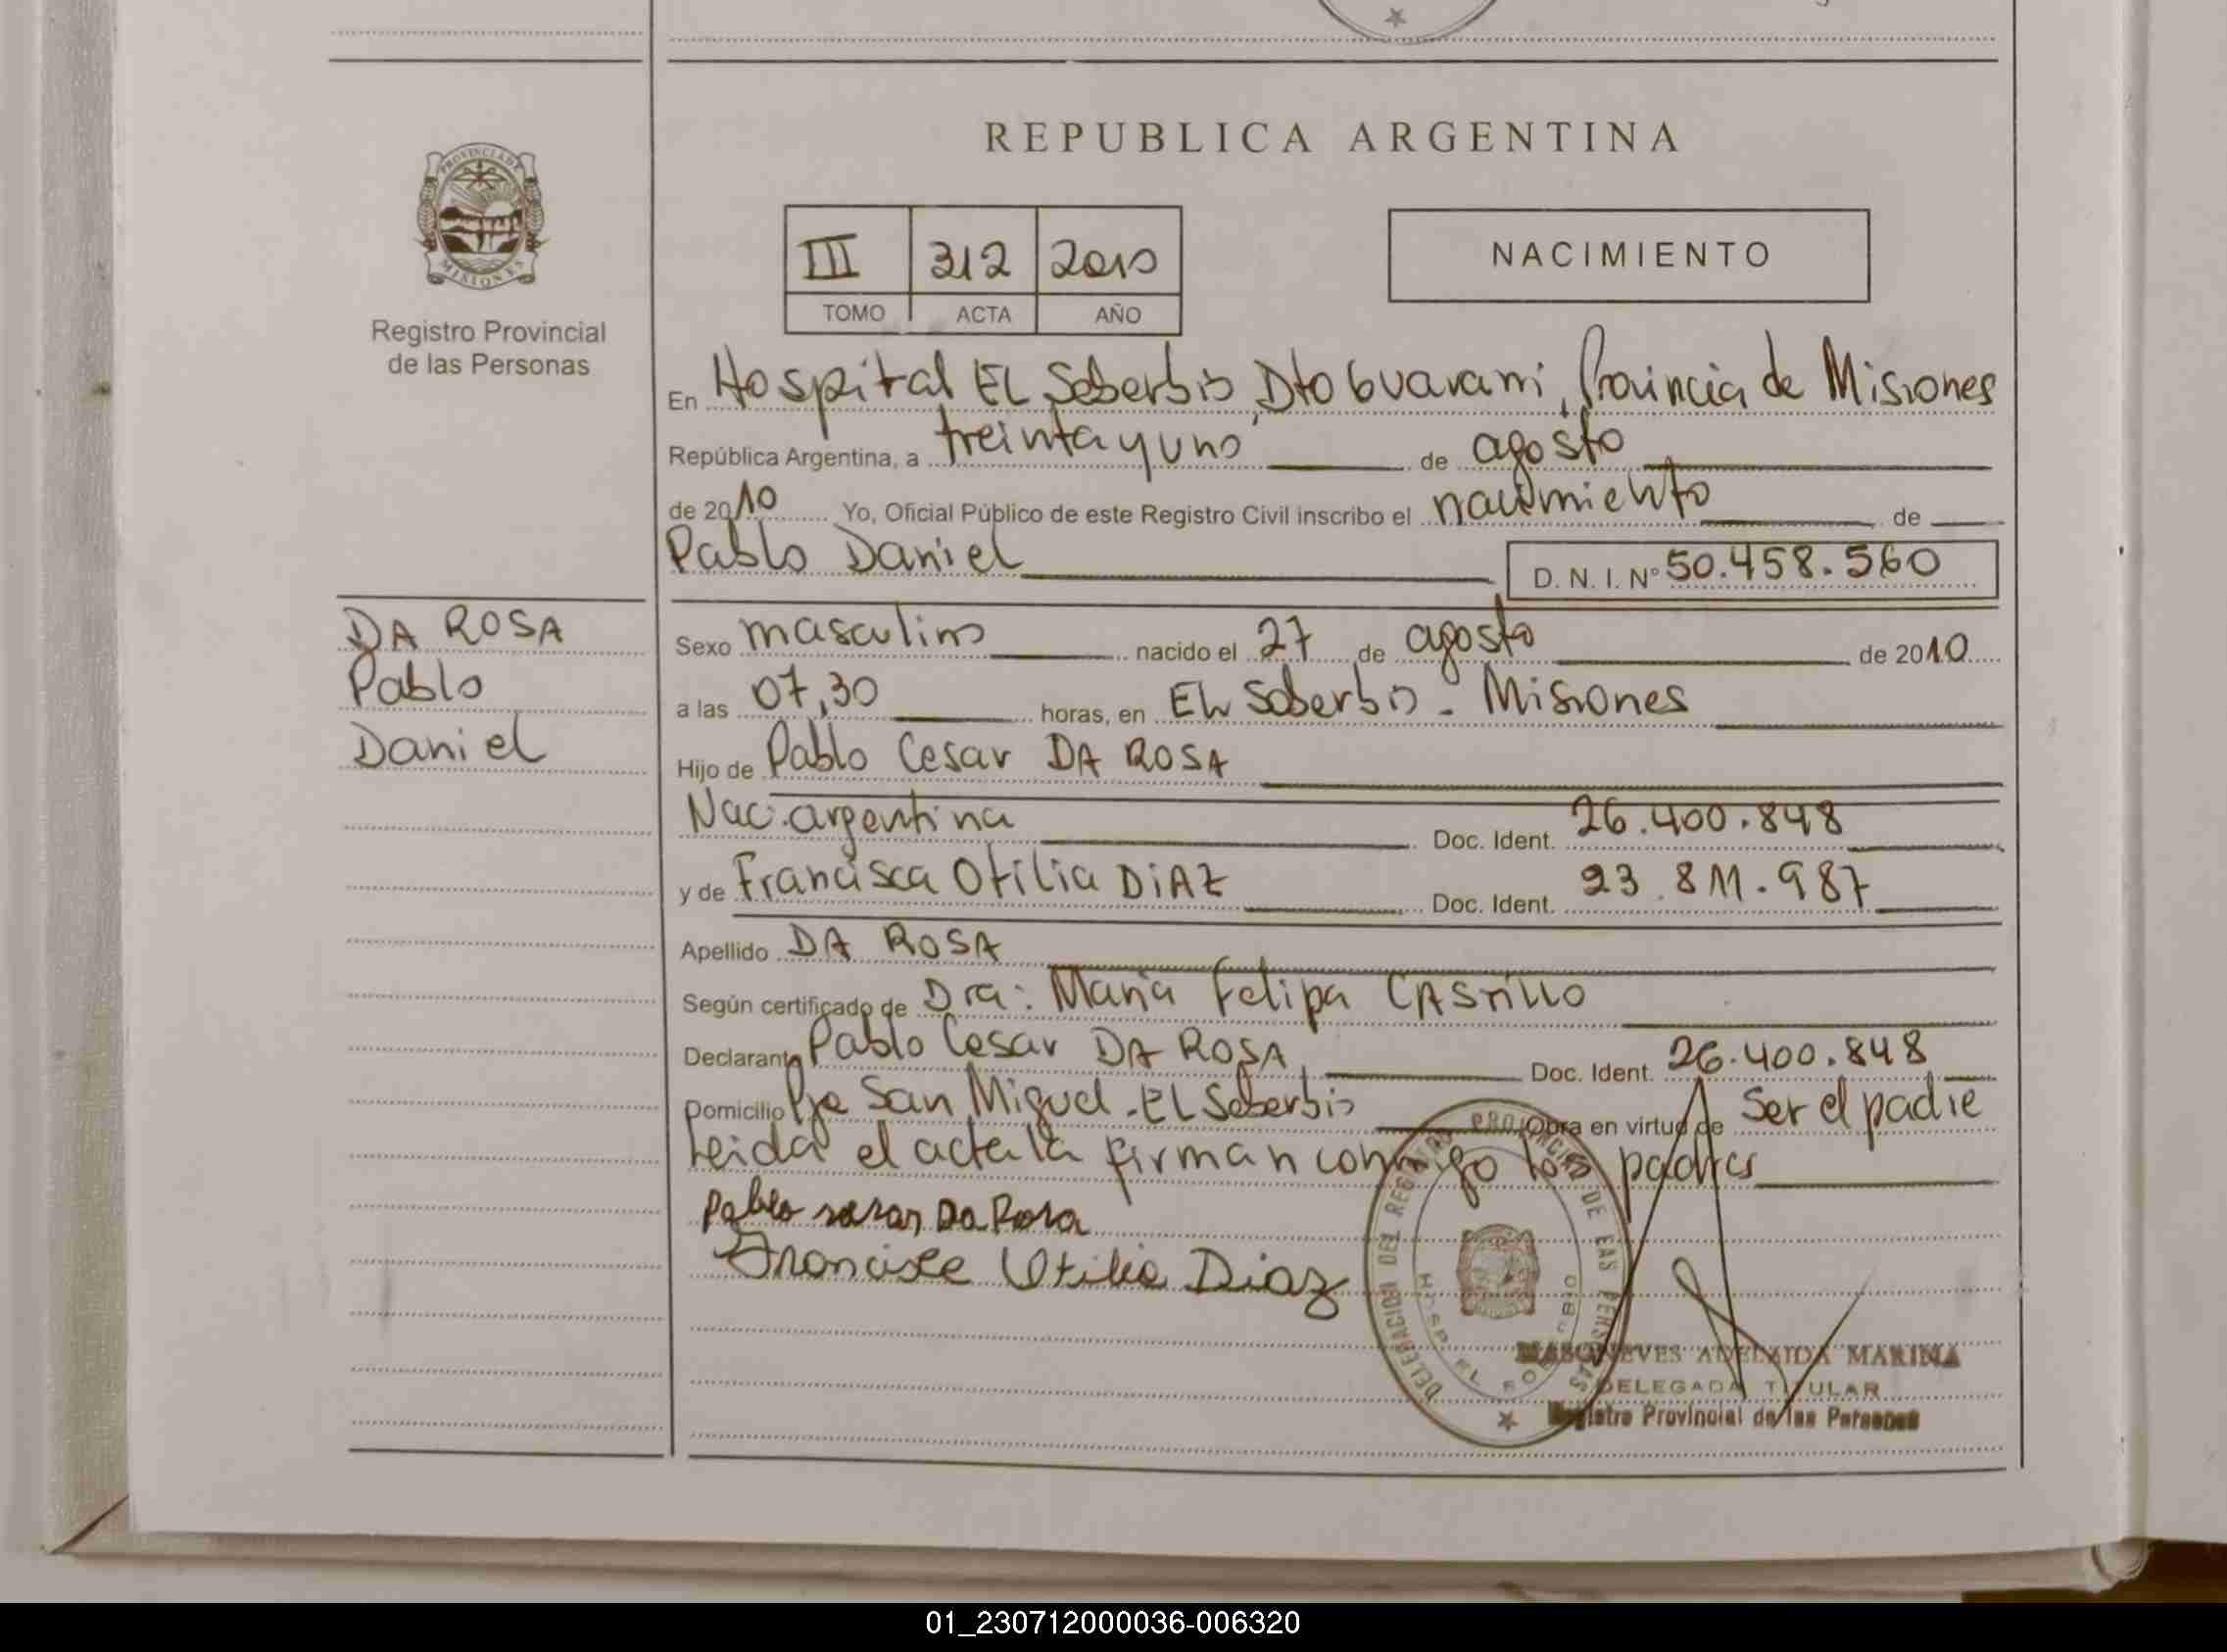 REPUBLICA ARGENTINA
PROVINCIA DE
MISIONES
Registro Provincial
de las Personas
III 312 2010
TOMO ACTA AÑO
NACIMIENTO
En Hospital EL Soberbio, Dto Guarani, Provincia de Misiones
República Argentina, a treinta y uno de agosto
de 2010 Yo, Oficial Público de este Registro Civil inscribo el nacimiento de
Pablo Daniel D.N.I. Nº 50.458.560
DA ROSA
Pablo
Daniel
Sexo masculino nacido el 27 de agosto de 2010
a las 07,30 horas, en EL Soberbio - Misiones
Hijo de Pablo Cesar DA ROSA
Nac. argentina Doc. Ident. 26.400.848
y de Francisca Otilia DIAZ Doc. Ident. 23.811.987
Apellido DA ROSA
Según certificado de Dra: Maria Felipa CASTILLO
Declarante Pablo Cesar DA ROSA Doc. Ident. 26.400.848
Domicilio Pje San Miguel - EL Soberbio Obra en virtud de Ser el padre
Leida el acta la firman conmigo los padres
Pablo sesar Da Rosa
Francisca Otilia Diaz
DELEGACION DEL REGISTRO PROVINCIAL DE LAS PERSONAS
ADELAIDA MARINA
DELEGADA TITULAR
Registro Provincial de las Personas
01_230712000036-006320